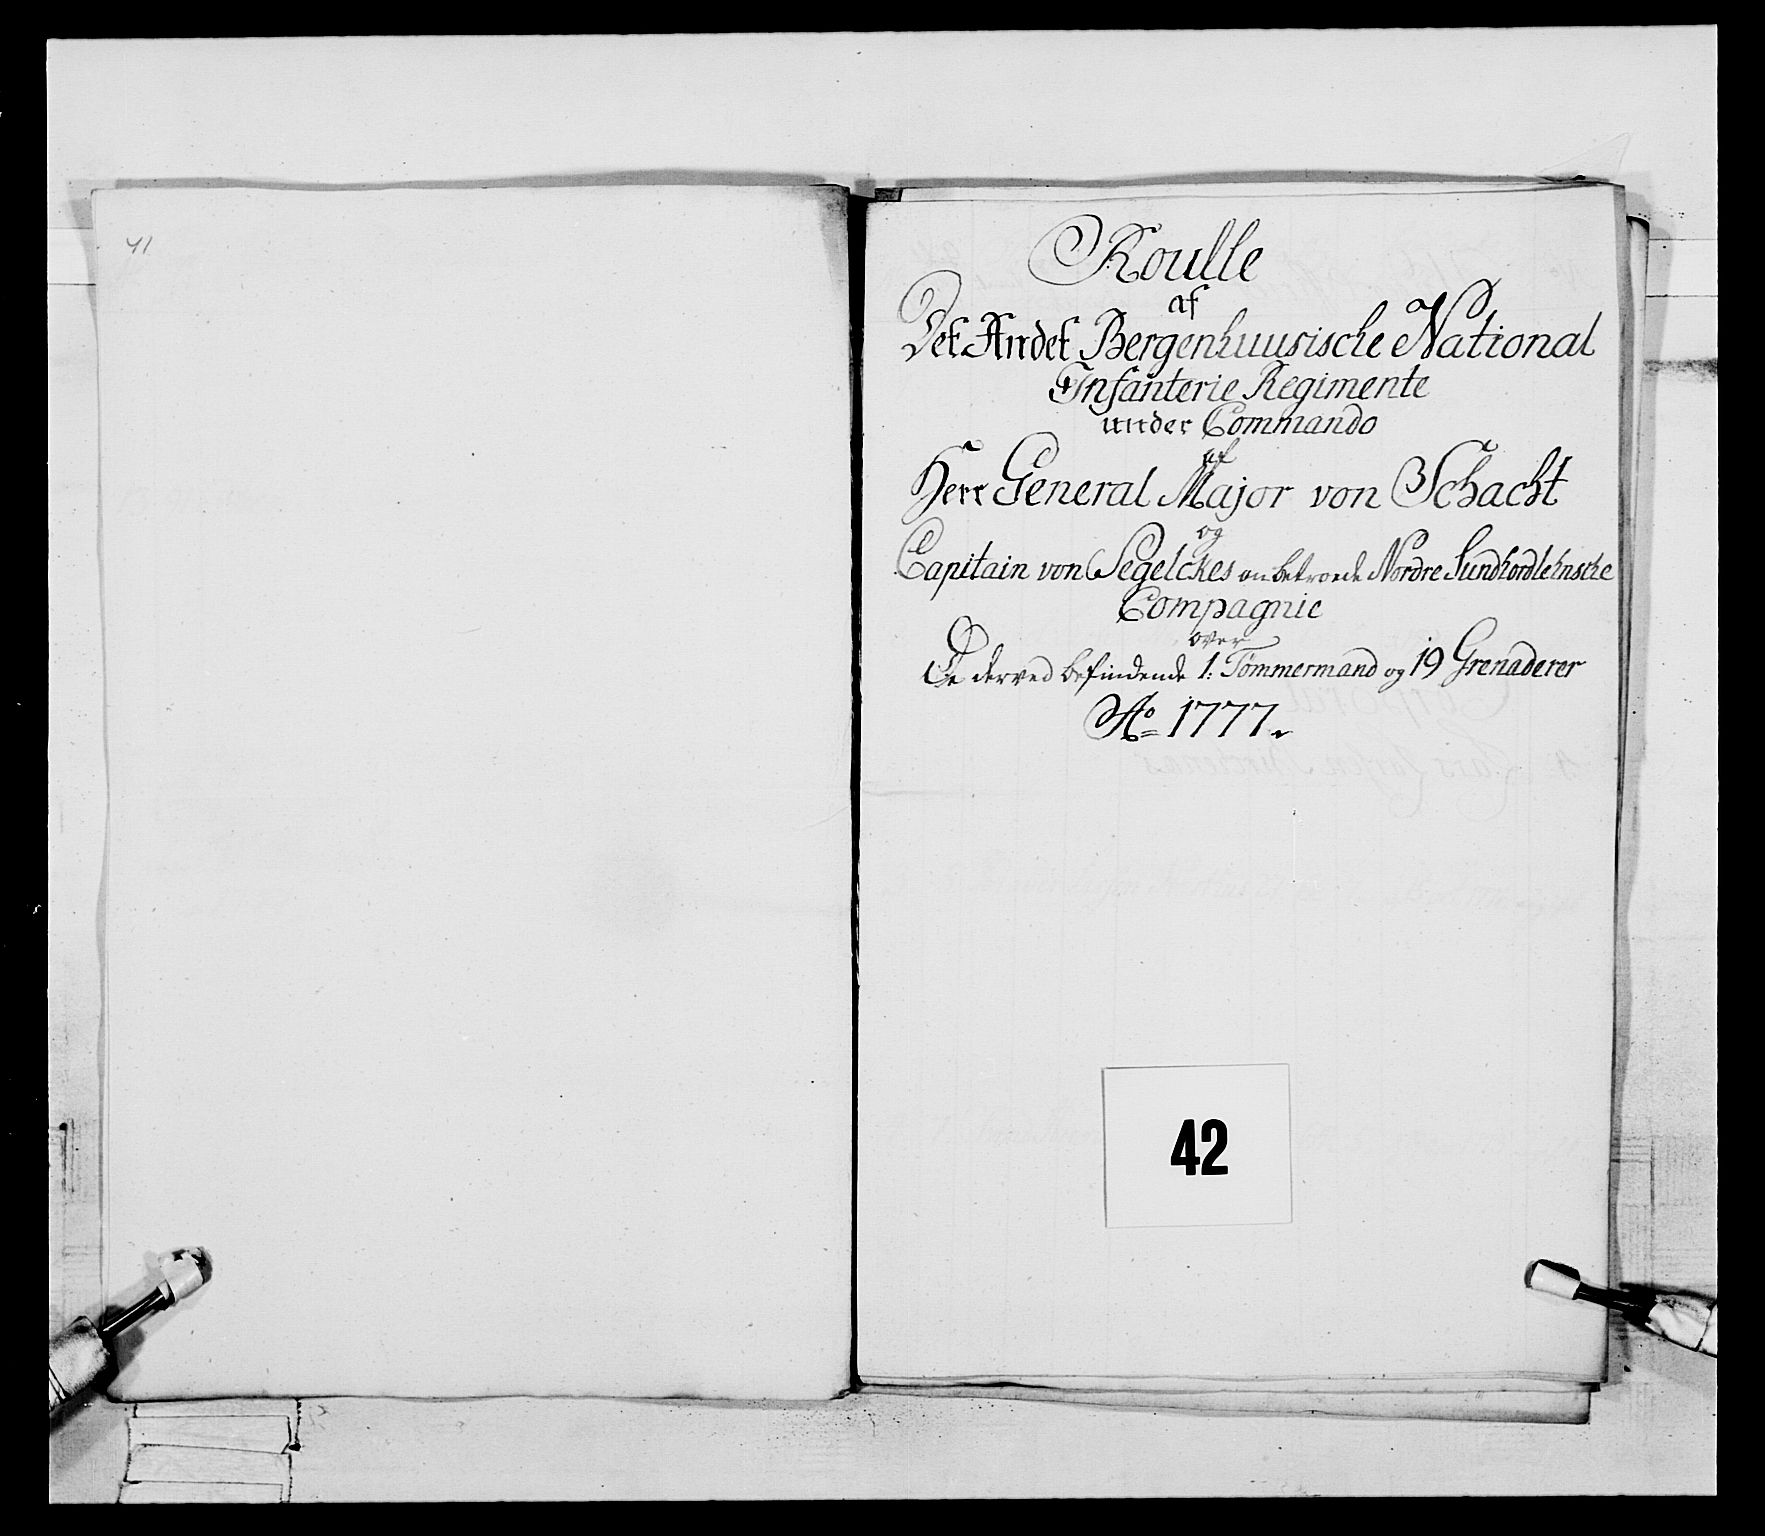 41
Roulle
af
Det Andet Bergenhuusische National
Infanterie Regimente
under Commando
af
Herr General Major von Schacht
og
Capitain von Segelckes anbetroede Nordre Sundhordlehnsche
Compagnie
over
De derved befindende 1: Tømmermand og 19 Grenaderer
Ao 1777.
42